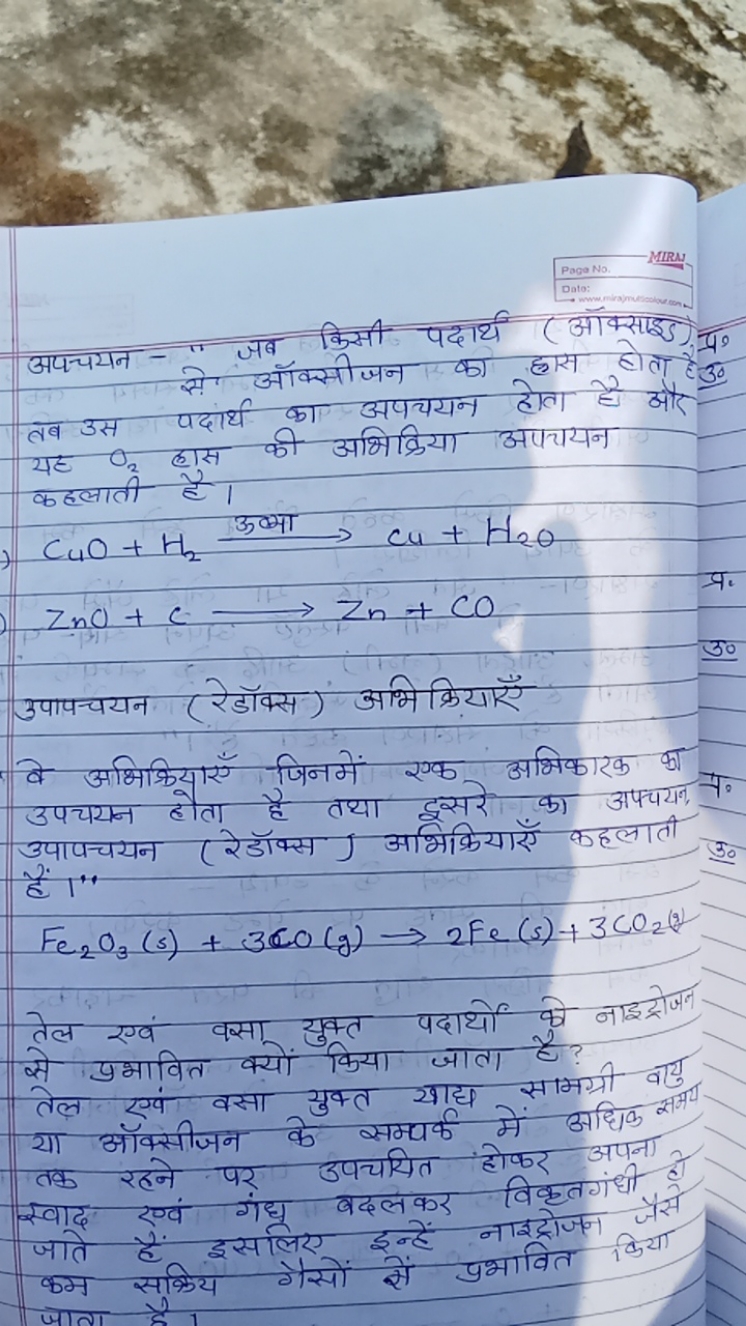 MIRAJ
Page No.
Date:
www.mirajmulticolour.com
अपचयन - " जब किसी पदार्थ (ऑक्साइड)
से ऑक्सीजन का ह्रास होता है
तब उस पदार्थ का अपचयन होता है और
यह O₂ ह्रास की अभिक्रिया अपचयन
कहलाती है ।
CuO + H₂ ऊष्मा → Cu + H₂O
ZnO + C → Zn + CO
उपापचयन (रेडॉक्स) अभिक्रियाएँ
वे अभिक्रियाएँ जिनमें एक अभिकारक का
उपचयन होता है तथा दूसरे का अपचयन,
उपापचयन (रेडॉक्स) अभिक्रियाएँ कहलाती
हैं ।"
Fe₂O₃ (s) + 3CO (g) → 2Fe (s) + 3CO₂(g)
तेल एवं वसा युक्त पदार्थो को नाइट्रोजन
से प्रभावित क्यों किया जाता है?
तेल एवं वसा युक्त खाद्य सामग्री वायु
या ऑक्सीजन के सम्पर्क में अधिक समय
तक रहने पर उपचयित होकर अपना
स्वाद एवं गंध बदलकर विकृतगंधी हो
जाते हैं इसलिए इन्हें नाइट्रोजन जैसे
कम सक्रिय गैसों से प्रभावित किया
जाता है ।
प्र॰
उ॰
प्र॰
उ॰
प्र॰
उ॰